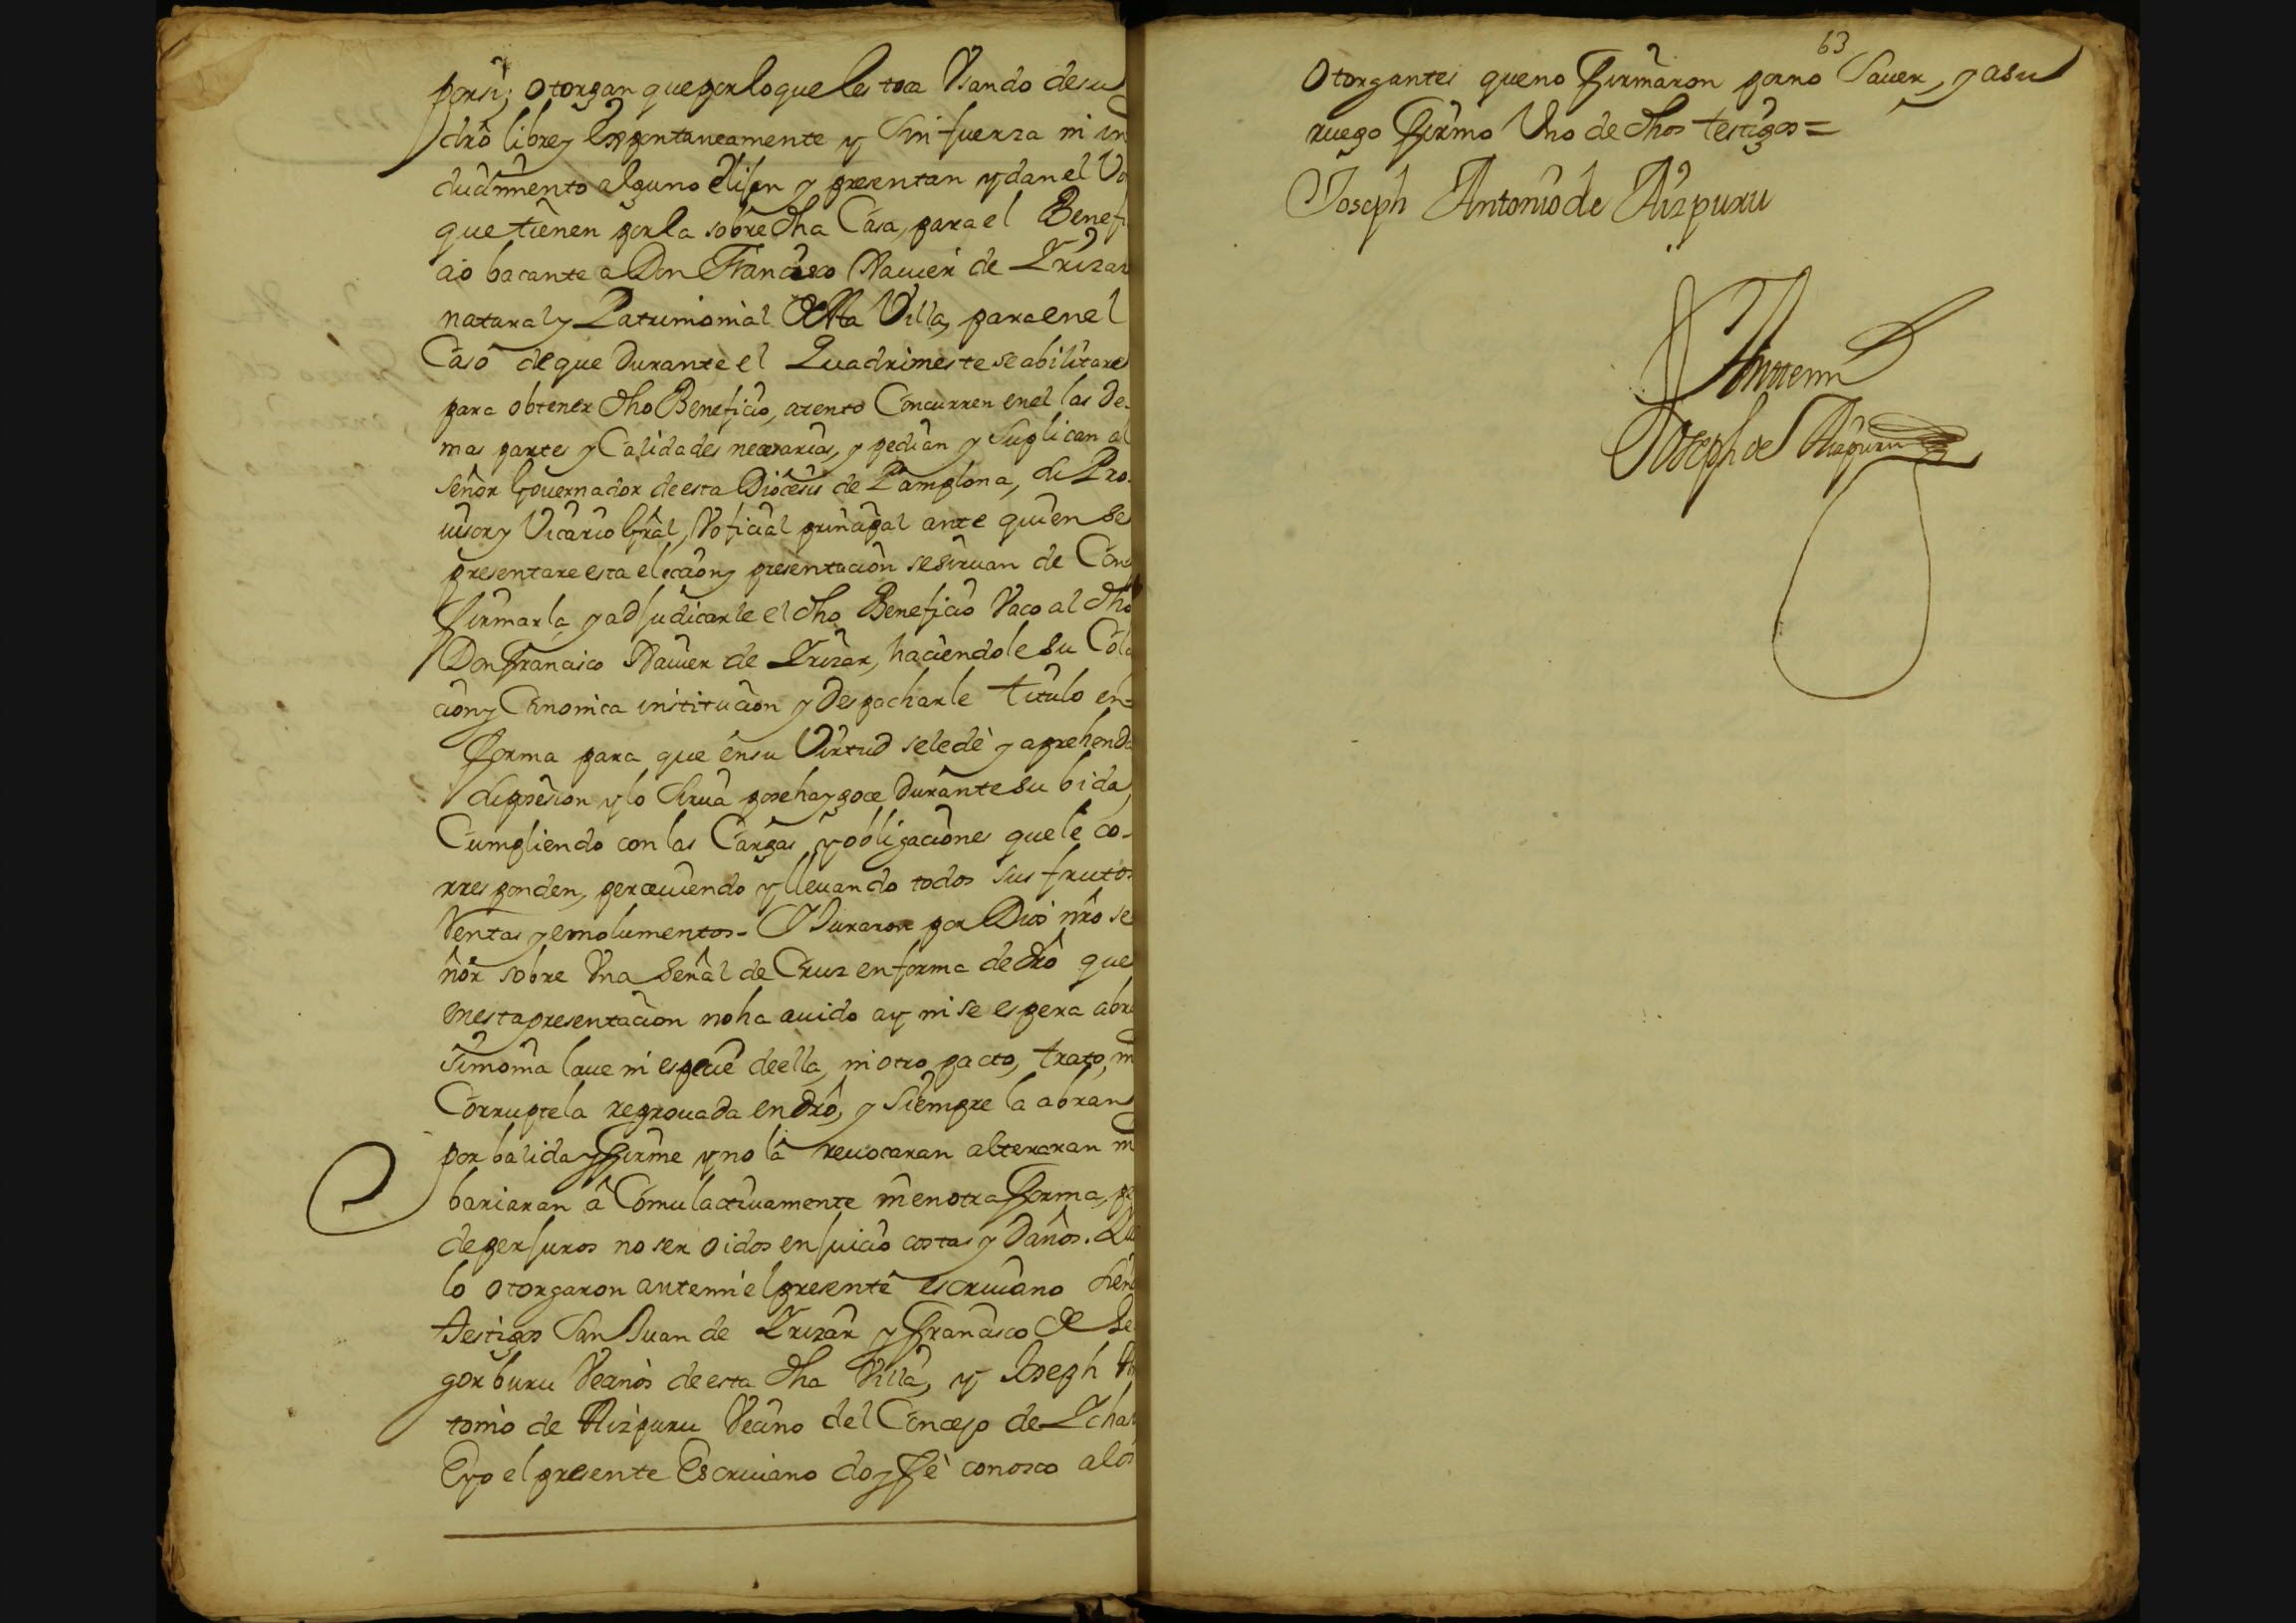 porsi; otorgan que por lo que les toca Vsando de su
dro libre y Espontaneamente y sin fuerza ni in
duzimiento alguno elijen y presentan y dan el Vo
que tienen por la sobre dha Casa, para el Benefi
cio bacante a Don Francisco Xauier de Yrizar
natural y Patrimonial desta Villa, para en el
Caso de que Durante el Quadrimestre se abilitare
para obtener dho Beneficio, atento Concurren en el las de-
mas partes y Calidades necesarias, y pedian y Suplican al
señor Gouernador de esta Diocesis de Pamplona, su Pro-
uisor y Vicario Gral, V oficial prinzipal ante quien se
presentare esta eleccion y presentacion se siruan de Con
firmarla, y adjudicarle el dho Beneficio Vaco al dho
Don Francisco Xauier de Yrizar, haciendole su Cola
cion y Canonica institucion y Despacharle titulo en-
forma para que en su Virtud se le dè y aprehenda
la posesion y lo sirua poseha y goce Durante su bida,
Cumpliendo con las Cargas y obligaciones que le co-
rresponden, perceuiendo y lleuando todos sus frutos
Rentas y emolumentos- Y Juraron por Dios nro se
ñor sobre Vna Señal de Cruz en forma de dro que
en esta presentacion no ha auido ay ni se espera abra
simonia laue ni especie de ella, ni otro pacto, trato, ni
Corruptela reprouada en dro, y Siempre la abran
por balida y firme y no la reuocaran alteraran ni
bariaran à Comulactiuamente ni en otra forma, pe
de perjuros no ser oidos en juicio costas y Daños. Y
lo otorgaron ante mi el presente escriuano siendo
testigos San Juan de Yrizar y Francisco de Le
gorburu Vecinos de esta dha Villa, y Joseph An
tonio de Aizpuru Vecino del Concejo de Ychas
E yo el presente Escriuano doy fè conozco a los
63
Otorgantes que no firmaron por no Sauer, y a su
ruego firmo Vno de dhos testigos=
Joseph Antonio de Aizpuru
Ante mi
Joseph de Aizpuru